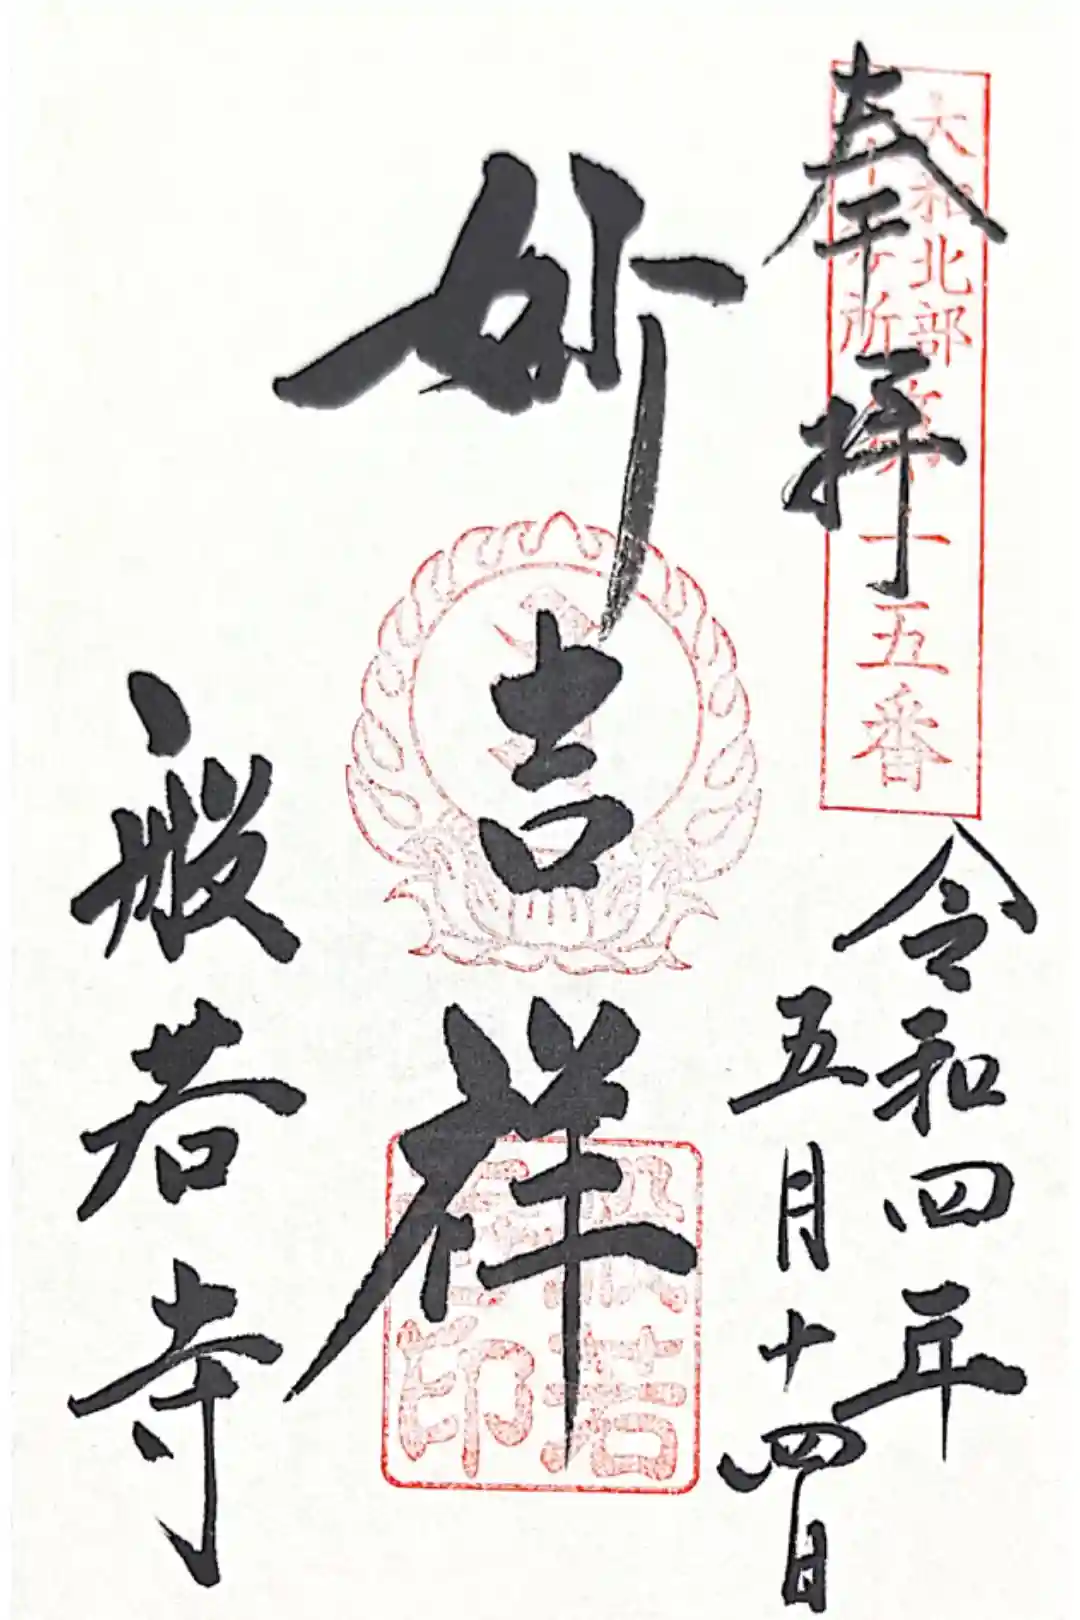 奉拝
大和北部
八十八ヶ所第十五番
令和四年
五月十四日
妙吉祥
般若
寺印
般若寺